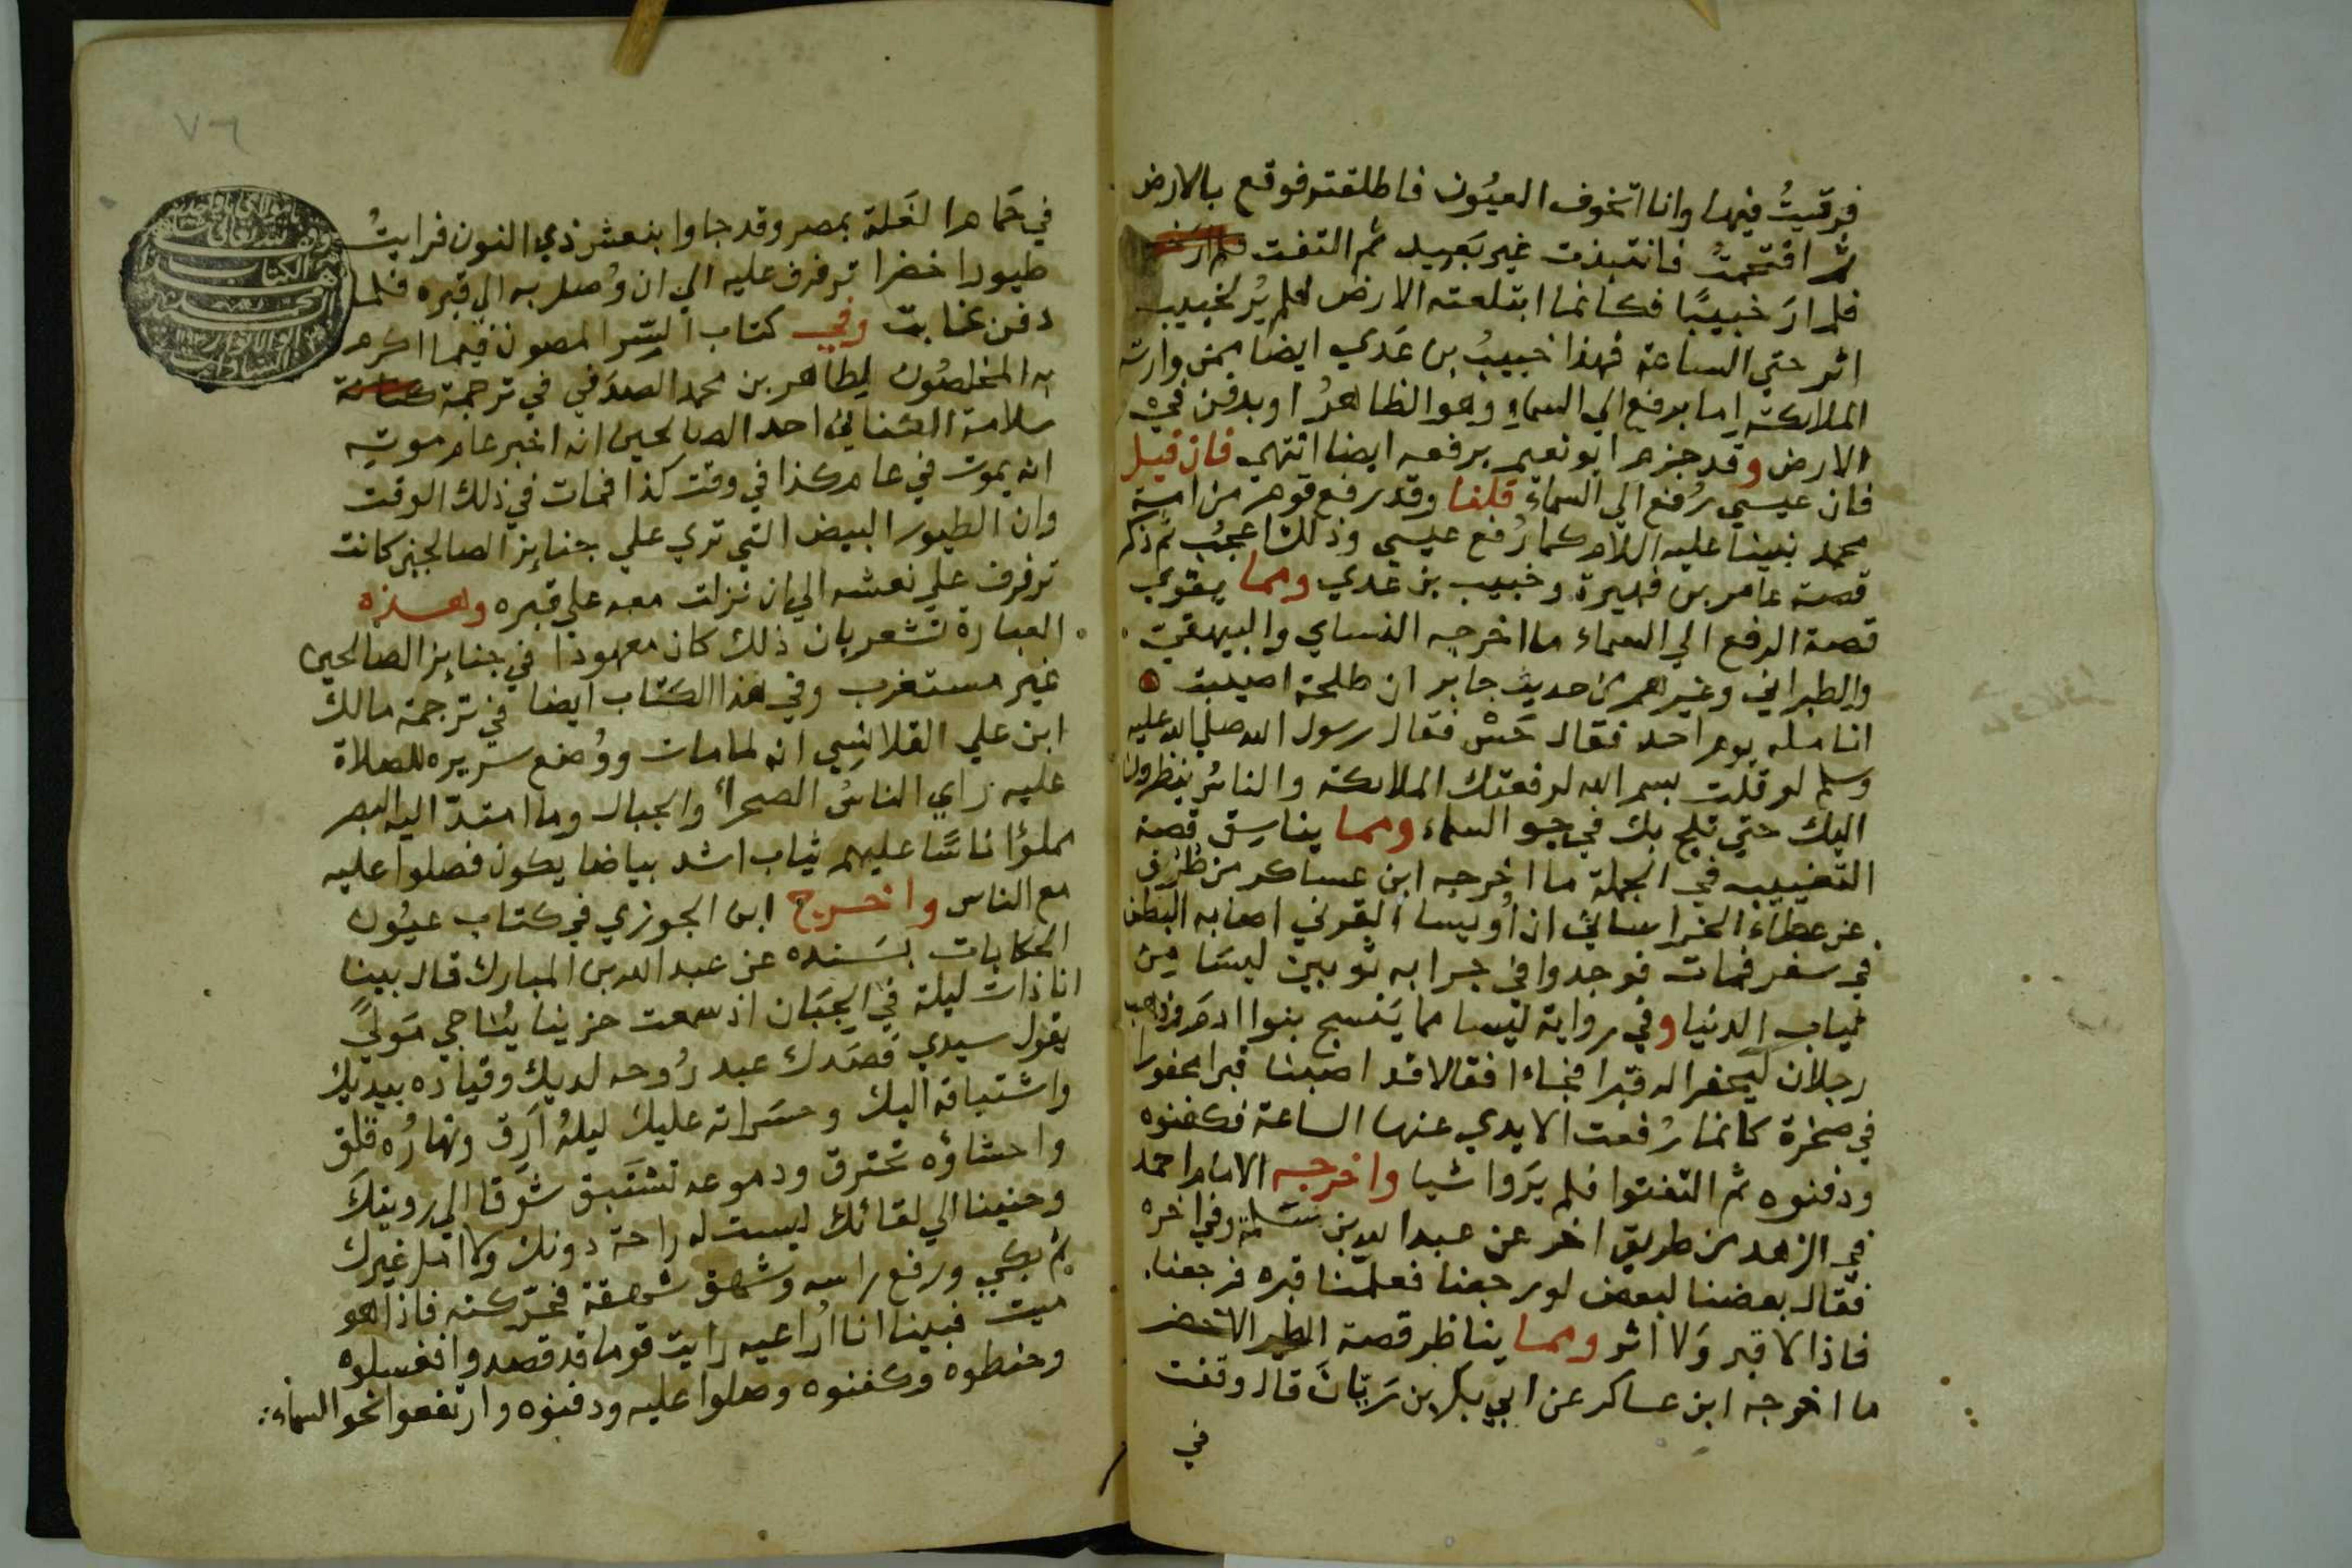 فرقيتُ فيها وانا اتخوف العيُون فاطلقته فوقع بالارض
ثم اقتحمتُ فانتبذت غير بَعِيد ثم التفت فلم ارَ
فلم ارَ خبيبًا فكانما ابتلعته الارض فلم يُر لخبيب
اثر حتي الساعة فهذا خبيبُ بن عَدي ايضا ممن وارته
الملائكة اما برفع الي السماءِ وهو الظاهرُ او بدفن في
الارض وقد جزم ابو نعيم برفعه ايضا انتهي فان قيل
فان عيسي رُفع الي السماء قلنا وقد رفع قوم من امة
محمد نبينا عليه السلام كما رُفع عيسي وذلك اعجبُ ثم ذكر
قصة عامر بن فهيرة وخبيب بن عَدي ومما يقوي
قصة الرفع الي السماء ما اخرجه النساي والبيهقي
والطبراني وغيرهم من حديث جابر ان طلحة اصيبت
انامله يوم احد فقال حَسْ فقال رسول الله صلي الله عليه
وسلم لو قلت بسم الله لرفعتك الملائكة والناسُ ينظرون
اليك حتي تلج بك في جو السماء ومما يناسبُ قصة
التغييب في الجملة ما اخرجه ابن عساكر من طرق
عن عطاء الخراساني ان اُويسا القرني اصابه البطن
في سفر فمات فوجدوا في جرابه ثوبين ليسَا من
ثياب الدنيا وفي رواية ليسا مما يَنسج بنوا ادمَ فذهب
رجلان ليحفرا له قبرا فجاءا فقالا قد اصبنا قبرا محفورا
في صخرة كانما رُفعت الايدي عنها الساعة فكفنوه
ودفنوه ثم التفتوا فلم يَروا شيا واخرجه الامام احمد
في الزهد من طريق اخر عن عبدالله بن سَلمة وفي اخره
فقال بعضنا لبعض لو رجعنا فعلمنا قبره فرجعنا
فاذا لا قبر وَلا اثر ومما يناظر قصة الطير الاخضر
ما اخرجه ابن عساكر عن ابي بكر بن رَيَّانَ قال وقفت
في
٧٦
في حَمام الغَلة بمصر وقد جاوا بنعش ذي النون فرايتُ
طيورا خضرا ترفرف عليه الي ان وُصل به الي قبره فلما
دفن غابت وفي كتاب السّر المصون فيما اكرم
به المخلصُون لطاهر بن محمد الصدَفي في ترجمة
سلامة الكناني احد الصالحين انه اخبر عام موته
انه يموت في عام كذا في وقت كذا فمات في ذلك الوقت
وان الطيور البيض التي تري علي جنايز الصالحين كانت
ترفرف علي نعشه الي ان نزلت معه علي قبره وهذه
العبارة تشعر بان ذلك كان معهودا في جنايز الصالحين
غير مستغرب وفي هذا الكتاب ايضا في ترجمة مالك
ابن علي القلانسِي انه لما مات ووُضع سريره للصلاة
عليه راي الناسُ الصحراء والجبال وما امتدّ اليه البصر
مملؤا ناسًا عليهم ثياب اشد بياضا يكون فصلوا عليه
مع الناس واخرج ابن الجوزي في كتاب عيُون
الحكايات بسَنده عن عبد الله بن المبارك قال بينا
انا ذات ليلة في الجبَان اذ سمعت حزينا يُناجي مَوليً
يقول سيدي قَصَدك عبد رُوحه لديك وقياده بيديك
واشتياقه اليك وحسَراته عليك ليلهُ ارَق ونهارُه قلق
واحشاؤه تحترق ودموعه تستَبق شوقا الي رويتك
وحنينا الي لقائك ليست له راحة دونك ولا امل غيرك
ثم بكي ورفع راسه وشهق شهقة فحرّكته فاذا هو
ميت فبينا انا اُراعيه رايت قوما قد قصدوا فغسلوه
وحنطوه وكفنوه وصلوا عليه ودفنوه وارتفعوا نحو السماء